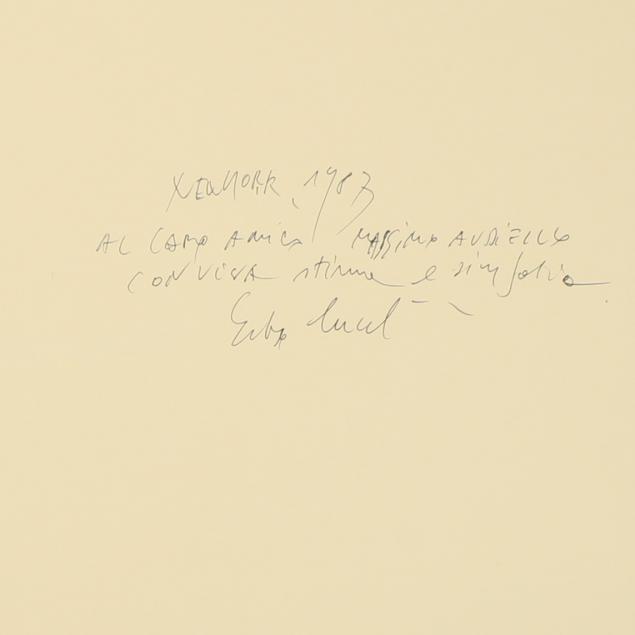 NEW YORK, 1987
AL CARO AMICO MASSIMO AUDIELLO
CON VIVA stima e simpatia